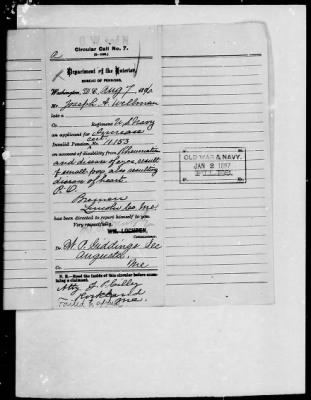 Circular Call No. 7.
Department of the Interior,
BUREAU OF PENSIONS,
Washington, D.C. Aug 7, 1896
Mr. Joseph A. Wellman
late a
Co. Regiment U.S. Navy
an applicant for Increase
cert.
Invalid Pension No. 11153
on account of disability from Rheumatism
and disease of eyes, result
of small pox, also resulting
disease of heart.
P.O.
Bremen
Lincoln Co. Me.
has been directed to report himself to you.
Very respectfully,
WM. LOCHREN,
Commissioner.
To W. P. Giddings Sec
Augusta,
Co. Me
N. B.—Read the inside of this circular before examining a claimant.
Atty. J. P. Cilley
Rockland
Me.
OLD WAR & NAVY.
JAN 2 1897
FILES.